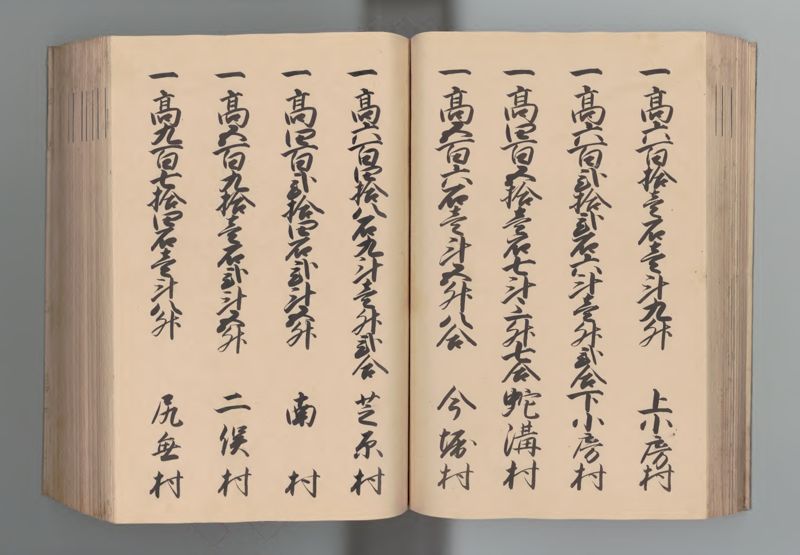 一高六百拾壱石壱斗九升 上小房村
一高六百弐拾弐石六斗壱升弐合 下小房村
一高四百五拾壱石七斗三升七合 蛇溝村
一高五百六石壱斗五升八合 今堀村
一高六百四拾八石九斗壱升弐合 芝原村
一高四百弐拾四石弐斗五升 南村
一高五百九拾壱石弐斗五升 二俣村
一高九百七拾四石壱斗八升 尻無村